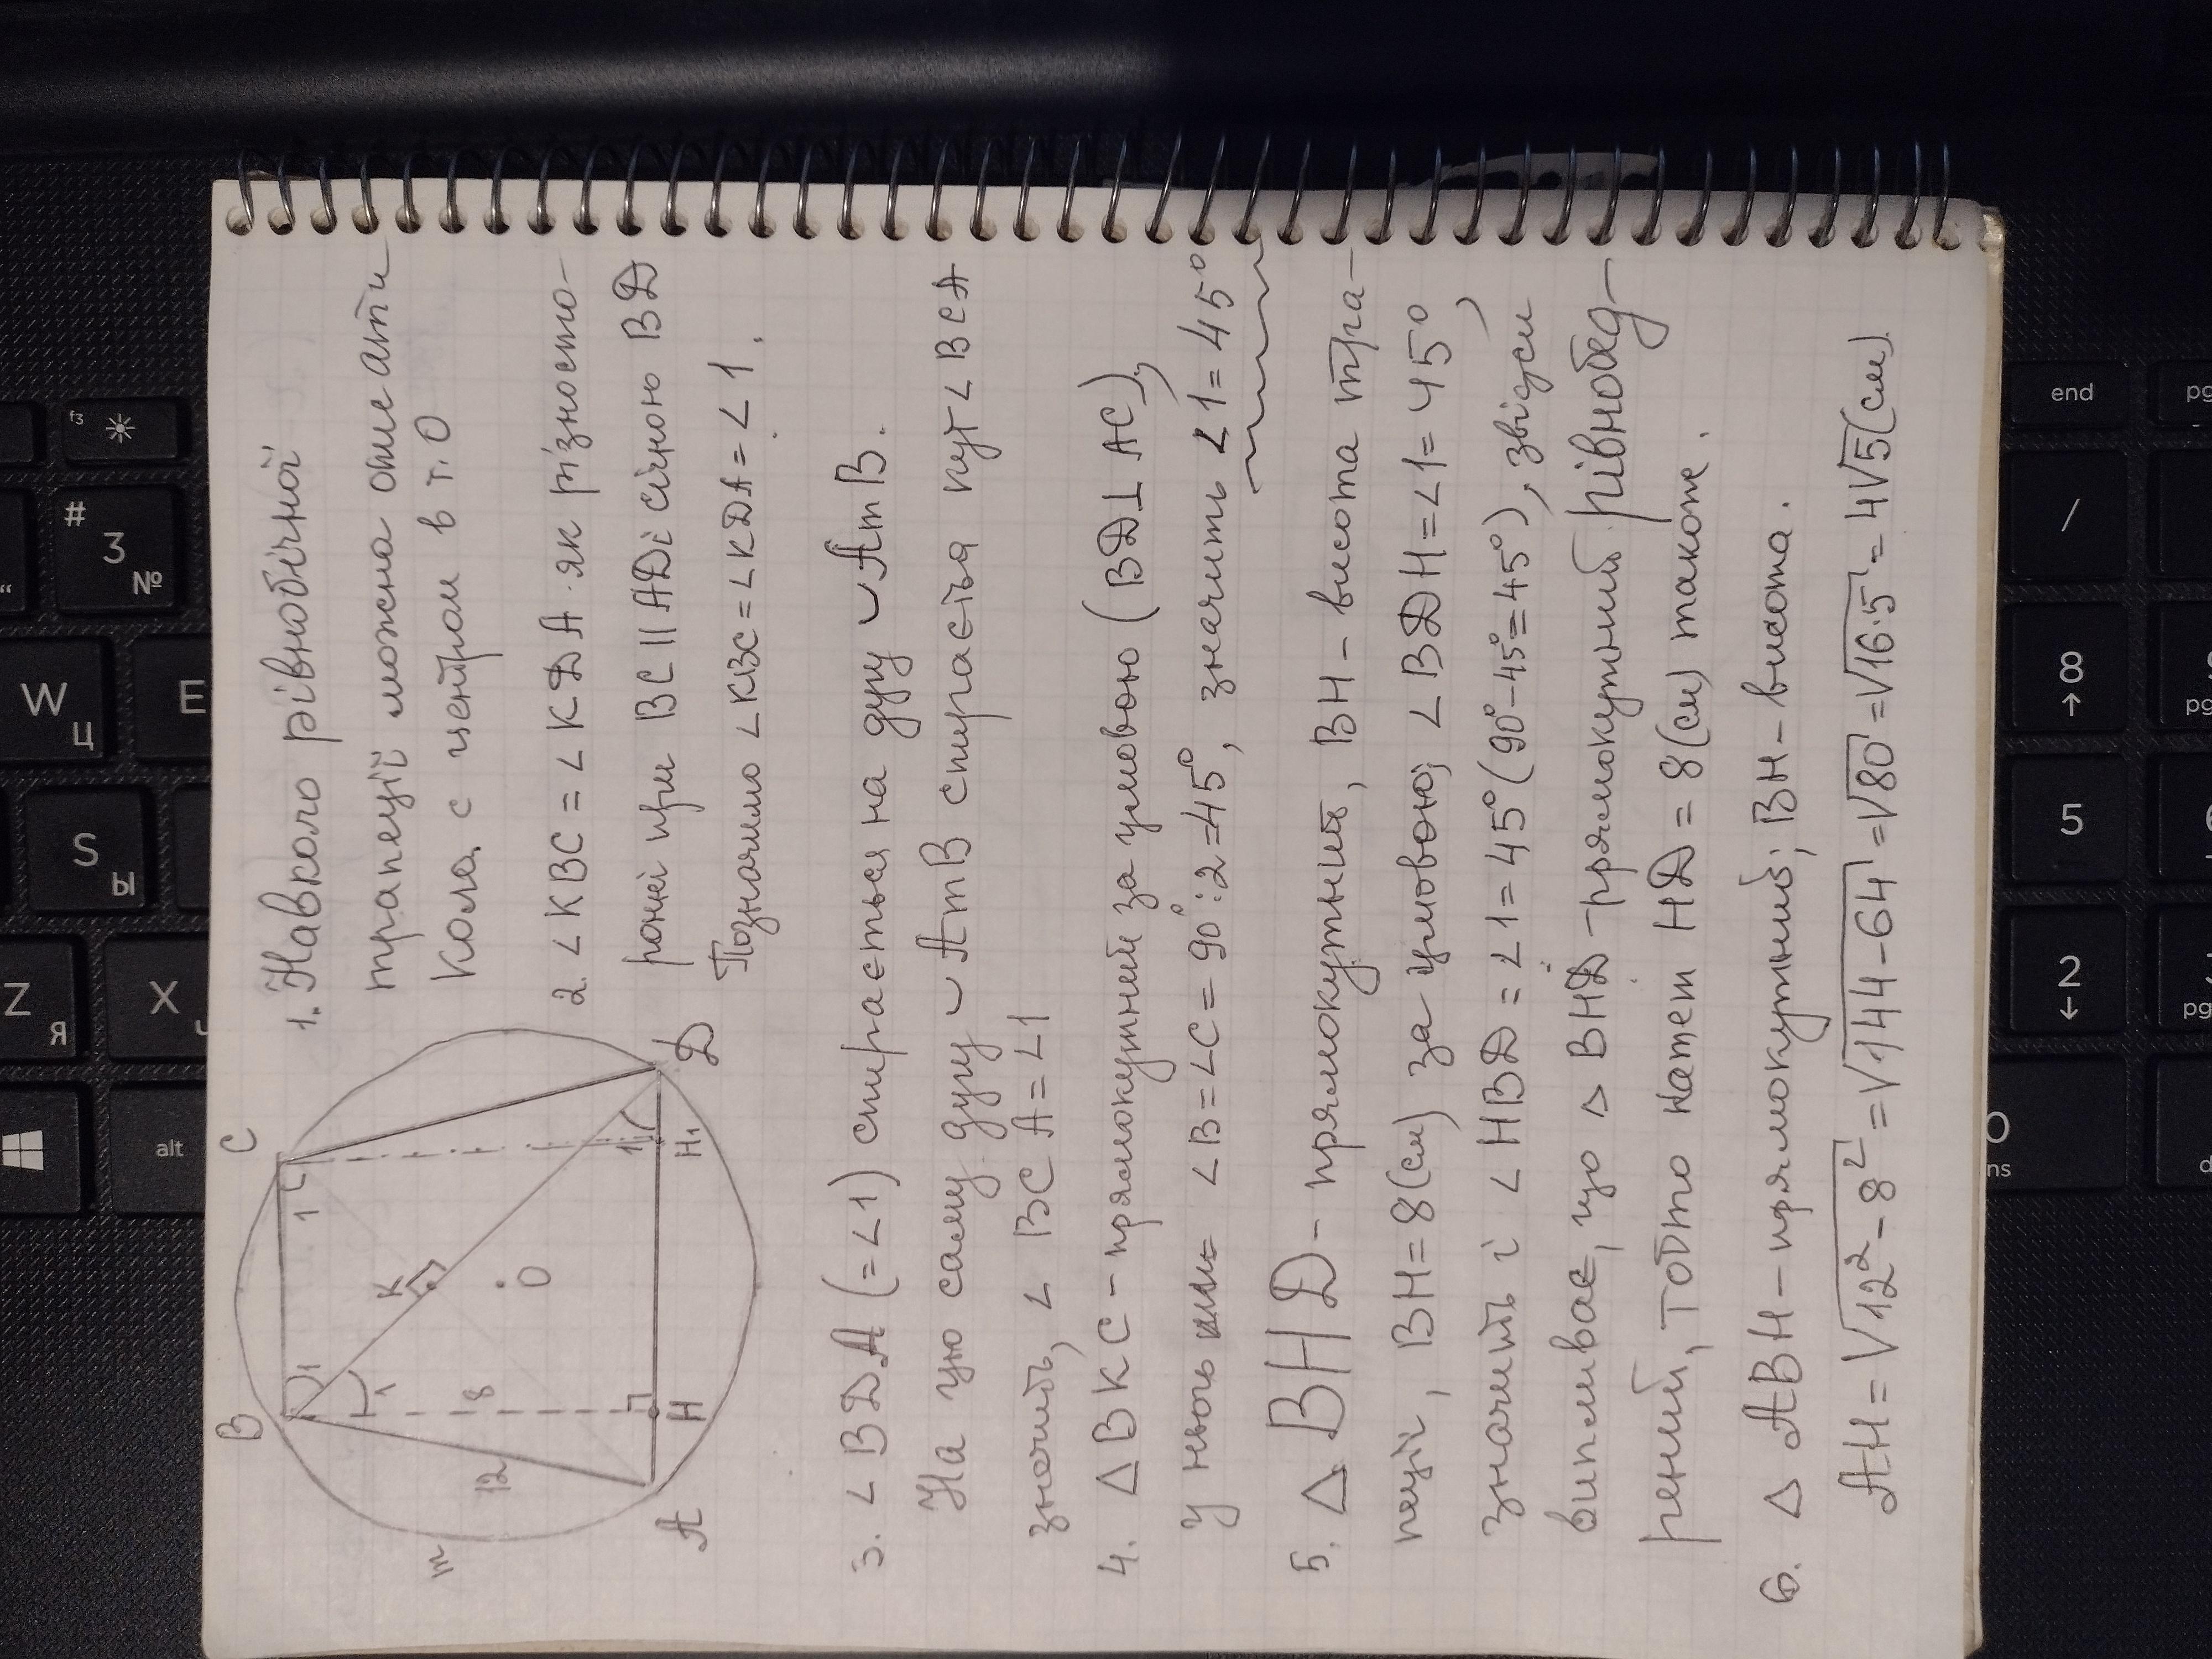 B
C
1
1
1
K
m
12
8
O
1
A
H
H₁
Д
1. Навколо рівнобічної
трапеції можна описати
кола с центром в т. О
2. ∠KBC = ∠KДA як різносто-
ронні при BC || AД і січною BД
Позначимо ∠KBC = ∠KДA = ∠1.
3. ∠BДA (=∠1) спирається на дугу ◡AmB.
На цю саму дугу ◡AmB спирається кут ∠BCA
значить, ∠BCA = ∠1
4. △BKC - прямокутний за умовою (BД⊥AC),
у нього ∠B = ∠C = 90° : 2 = 45°, значить ∠1 = 45°
5. △BHД - прямокутний, BH - висота тра-
пеції, BH = 8 (см) за умовою; ∠BДH = ∠1 = 45°,
значить і ∠HBД = ∠1 = 45° (90° - 45° = 45°), звідси
випливає, що △BHД - прямокутний рівнобед-
рений, тобто катет HД = 8 (см) також.
6. △ABH - прямокутний; BH - висота.
AH = √12² - 8² = √144 - 64 = √80 = √16·5 = 4√5 (см)
f3
#
3
№
W
Ц
E
S
Ы
Z
Я
X
alt
end
pg
/
8
↑
5
2
↓
pg